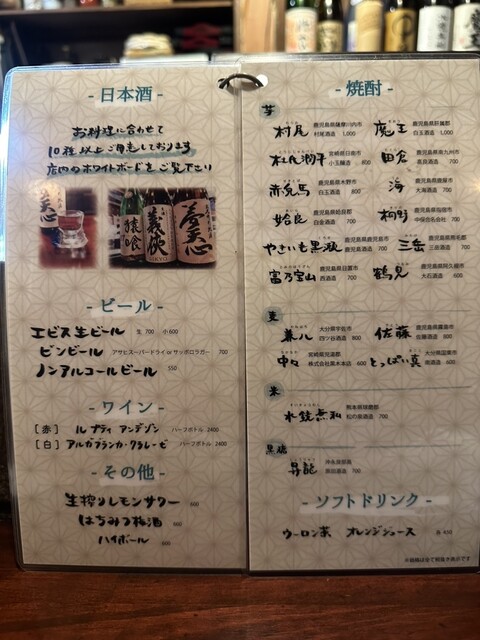 - 日本酒 -
お料理に合わせて
10種以上ご用意しております
店内のホワイトボードをご覧下さい
義侠
蒼天心
- ビール -
エビス生ビール 生 700 小600
ビンビール アサヒスーパードライ or サッポロラガー 700
ノンアルコールビール 550
- ワイン -
[赤] ハーフボトル 2400
[白] アルガブランカ・クラレーゼ ハーフボトル 2400
- その他 -
生搾りレモンサワー 600
はちみつ梅酒 600
ハイボール 600
- 焼酎 -
芋
村尾 鹿児島県薩摩川内市 村尾酒造 1,000
魔王 鹿児島県肝属郡 白玉酒造 1,000
杜氏潤平 宮崎県日南市 小玉醸造 800
田倉 鹿児島県南九州市 高良酒造 700
赤兎馬 白玉酒造 800
海 鹿児島県鹿屋市 大海酒造 700
姶良 鹿児島県姶良郡 白金酒造 700
鹿児島県指宿市 700
やきいも黒瀬 鹿児島県鹿児島市 鹿児島酒造 700
三岳 鹿児島県熊毛郡 三岳酒造 700
富乃宝山 鹿児島県日置市 西酒造 700
鶴見 鹿児島県阿久根市 大石酒造 600
麦
兼八 大分県宇佐市 四ツ谷酒造 800
佐藤 鹿児島県霧島市 佐藤酒造 800
中々 宮崎県児湯郡 株式会社黒木本店 600
とっぱい真 大分県国東市 南酒造 600
米
水鏡無私 熊本県球磨郡 松の泉酒造 700
黒糖
昇龍 沖永良部島 原田酒造 700
- ソフトドリンク -
ウーロン茶 オレンジジュース 各 450
※価格は全て税金別表示です